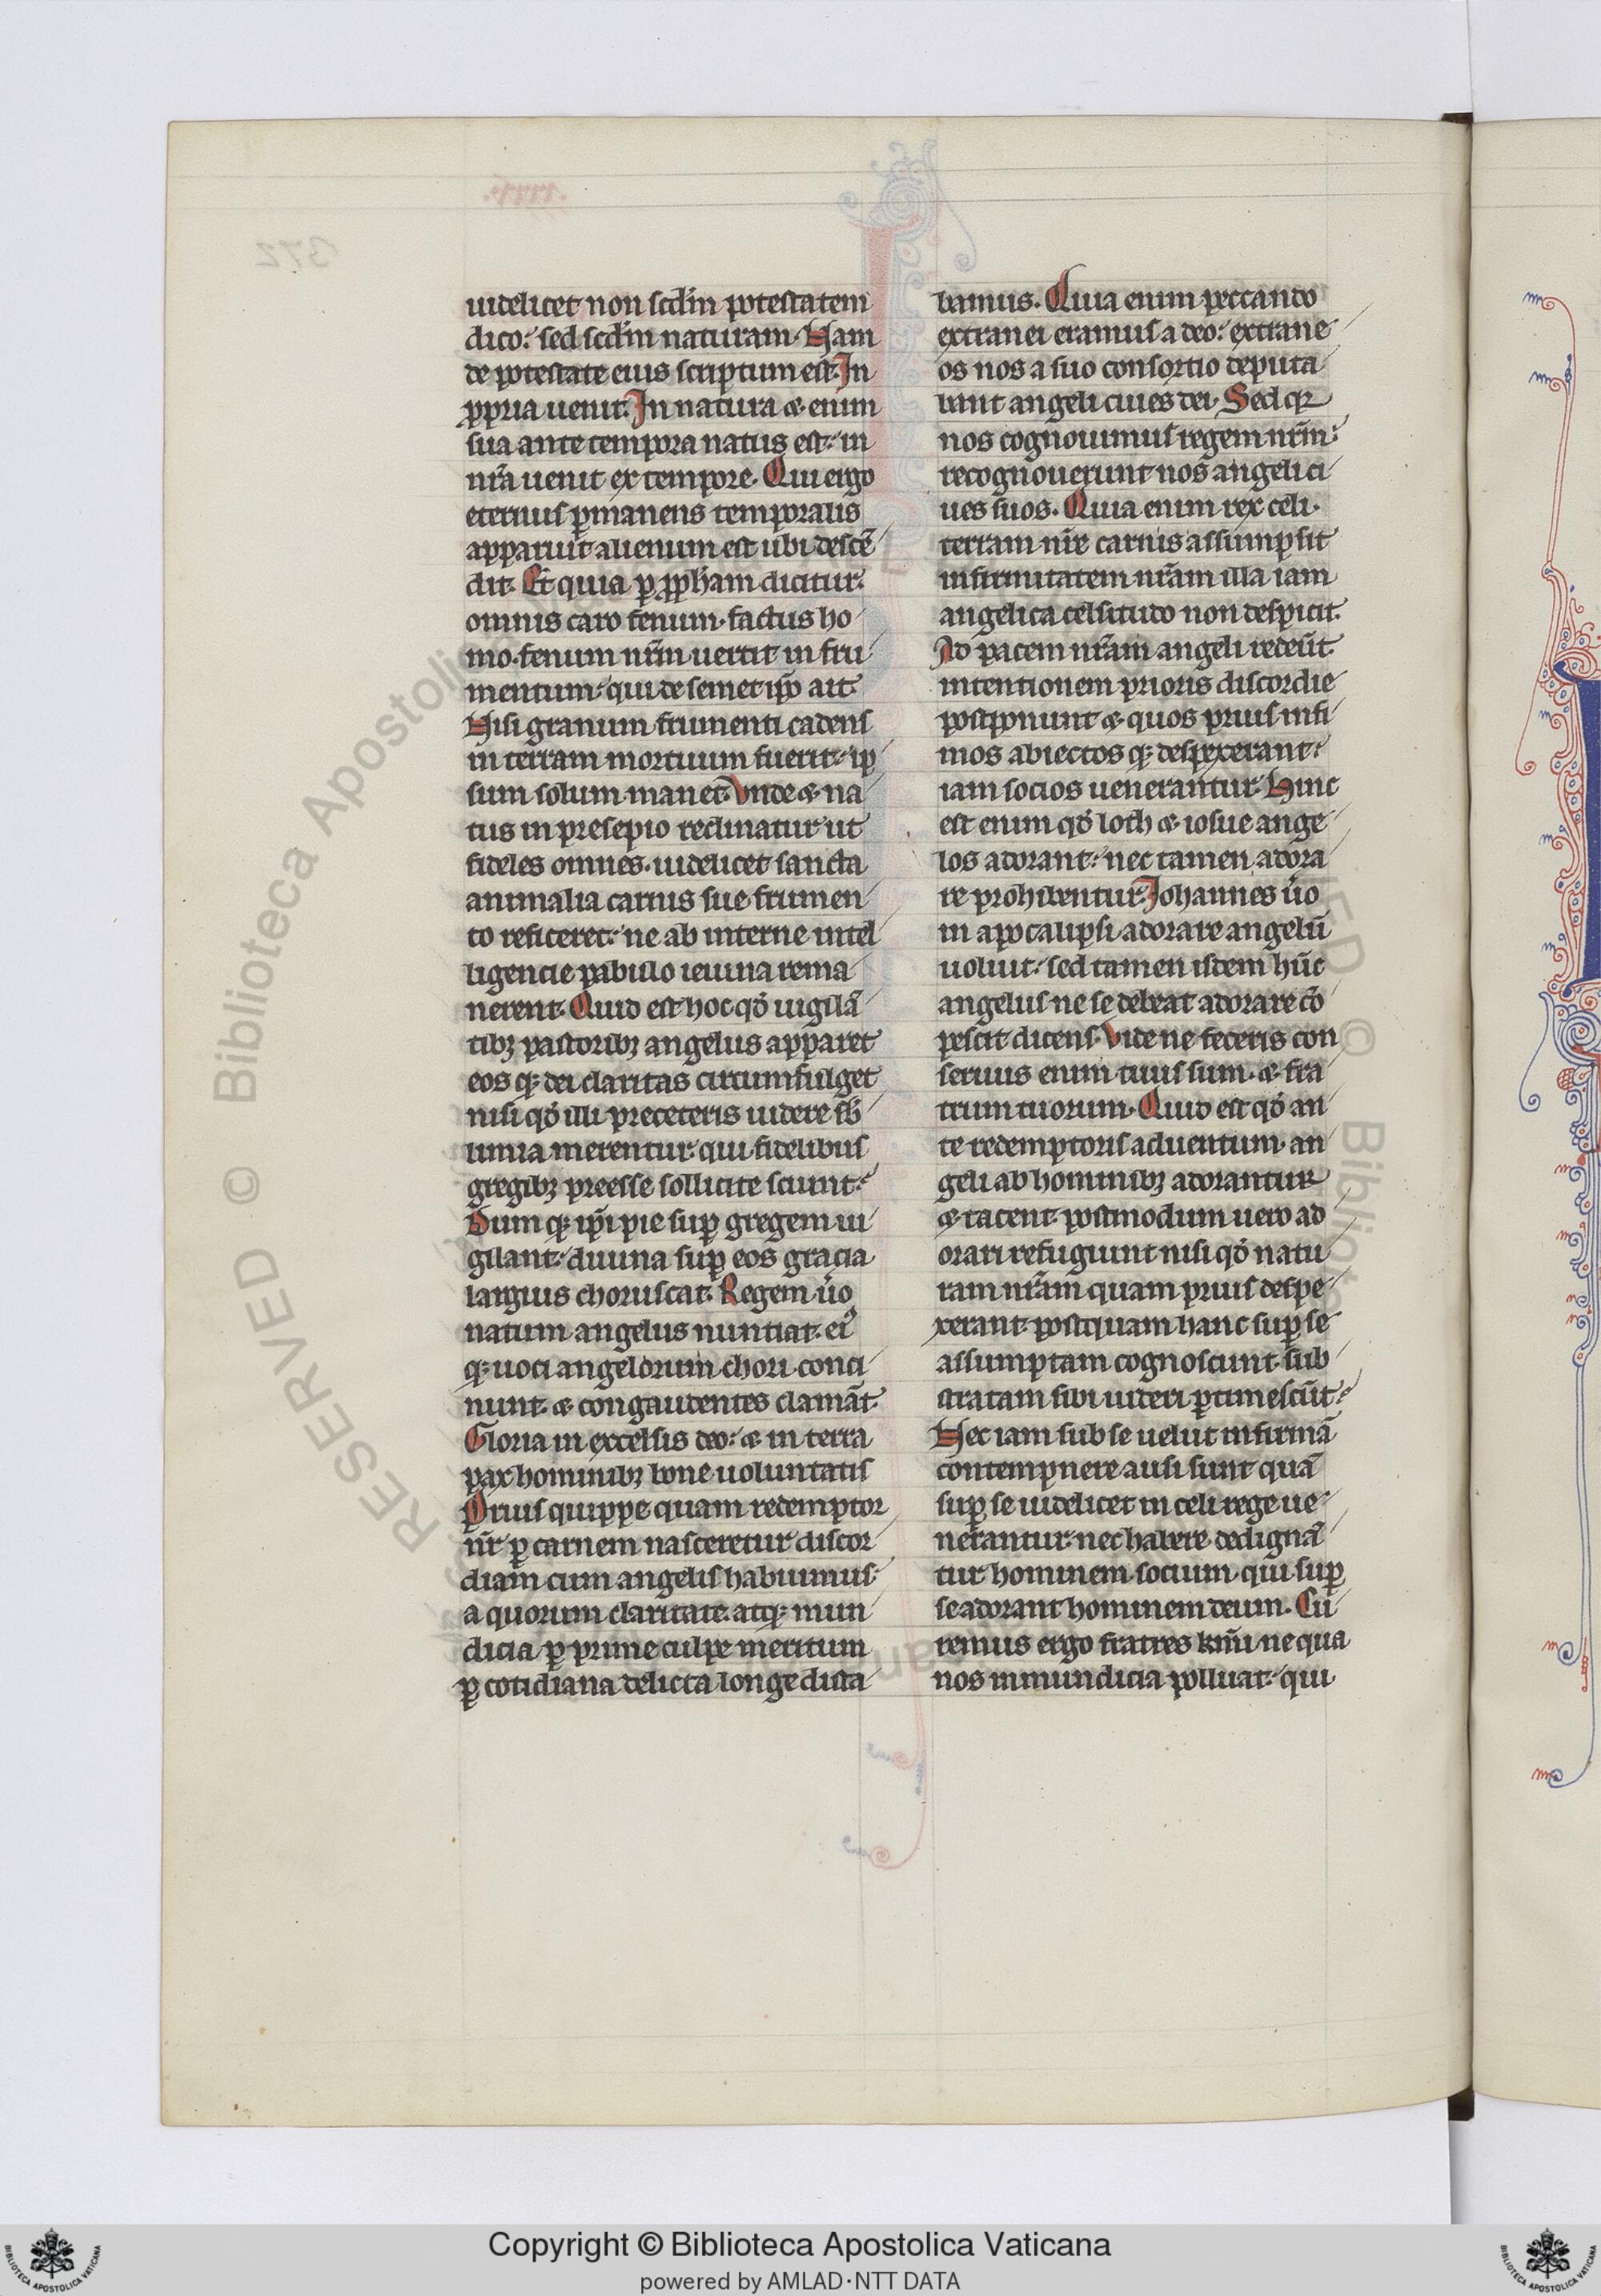 uidelicet non scd̄m potestatem
dico: sed scd̄m naturam. Nam
de potestate eius scriptum est. In
ꝓpria uenit. In natura ⁊ enim
sua ante tempora natus est: in
nr̄a uenit ex tempore. Qui ergo
eternus ꝑmanens temporalis
apparuit alienum est ubi descē
dit. Et quia ꝑ ꝓpham dicitur:
omnis caro fenum. factus ho
mo. fenum nr̄m uertit in fru
mentum: qui de semet ip̄o ait.
Nisi granum frumenti cadens
in terram mortuum fuerit: ip̄
sum solum manet. Vnde ⁊ na
tus in presepio reclinatur ut
fideles omnes. uidelicet sancta
animalia carnis sue frumen
to reficeret: ne ab interne intel
ligencie pabulo ieiuna rema
nerent. Quid est hoc qd̓ uigilā
tibꝫ pastoribꝫ angelus apparet
eos qꝫ dei claritas circumfulget
nisi qd̓ illi pre ceteris uidere sb̄
limia merentur. qui fidelibus
gregibꝫ preesse sollicite sciunt:
Dum qꝫ ip̄i pie suꝑ gregem ui
gilant: diuina suꝑ eos gracia
largius choruscat. Regem u̓o
natum angelus nuntiat. ei᷒
qꝫ uoci angelorum chori conci
nunt. ⁊ congaudentes clamāt.
Gloria in excelsis deo: ⁊ in terra
pax hominibꝫ bone uoluntatis
Prius quippe quam redemptor
nr̄ ꝑ carnem nasceretur discor
diam cum angelis habuimus:
a quorum claritate. atqꝫ mun
dicia ꝑ prime culpe meritum
ꝑ cotidiana delicta longe dista
bamus. Quia enim peccando
extranei eramus a deo: extrane
os nos a suo consortio deputa
bant angeli ciues dei. Sed qꝛ
nos cognouimus regem nr̄m:
recognouerunt nos angeli ci
ues suos. Quia enim rex celi.
terram nr̄e carnis assumpsit
infirmitatem nr̄am illa iam
angelica celsitudo non despicit.
Ad pacem nr̄am angeli redeūt.
intentionem prioris discordie
postponunt ⁊ quos prius infi
mos abiectos qꝫ despexerant:
iam socios uenerantur. Hinc
est enim qd̓ loth ⁊ iosue ange
los adorant: nec tamen adora
re prohibentur. Johannes u̓o
in apocalipsi adorare angelū
uoluit: sed tamen idem hūc
angelus ne se debeat adorare cō
pescit dicens. Vide ne feceris con
seruus enim tuus sum. ⁊ fra
trum tuorum. Quid est qd̓ an
te redemptoris aduentum. an
geli ab hominibꝫ adorantur
⁊ tacent. postmodum uero ad
orari refugiunt nisi qd̓ natu
ram nr̄am quam prius despe
xerant. postquam hanc suꝑ se
assumptam cognoscunt. sub
stratam sibi uideri ꝑtimescūt:
Nec iam sub se uelut infirmā
contempnere ausi sunt quā
suꝑ se uidelicet in celi rege ue
nerantur. nec habere dedignā
tur hominem socium. qui suꝑ
se adorant hominem deum. Cu
remus ergo fratres km̄i ne qua
nos inmundicia polluat: qui
Copyright © Biblioteca Apostolica Vaticana
powered by AMLAD·NTT DATA